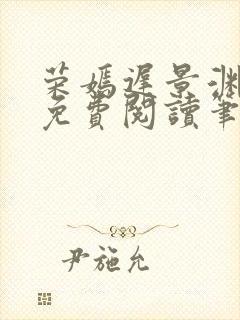 荣嫣遲景淵
免費閱讀筆
尹施允